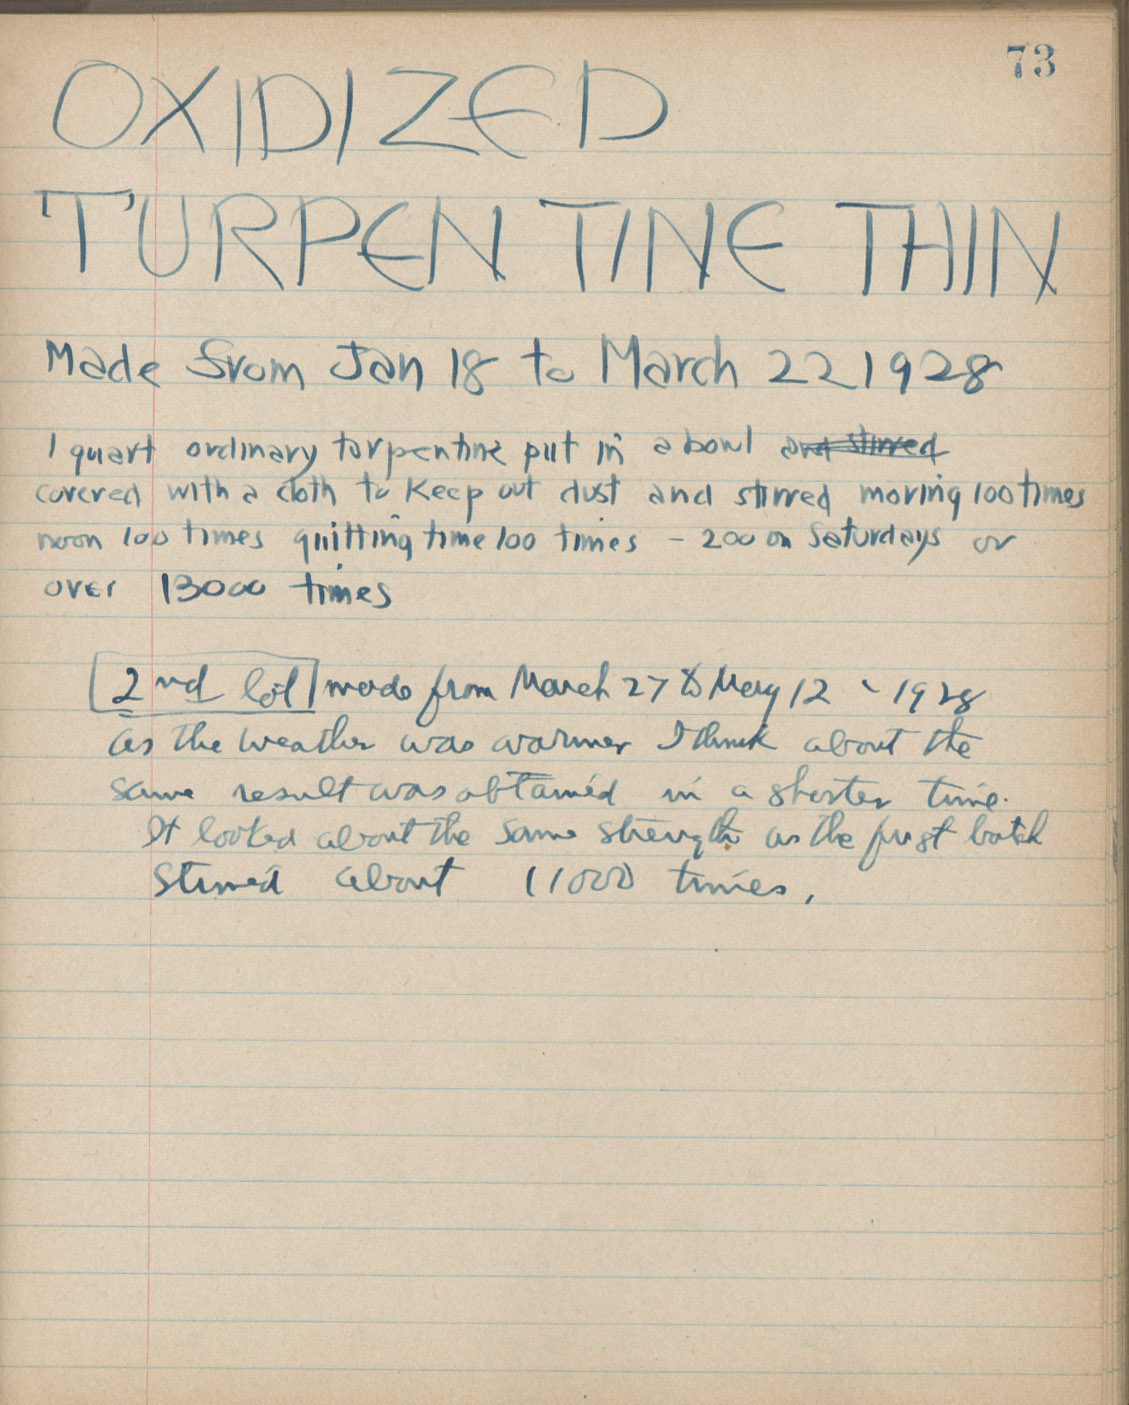 73
OXIDIZED
TURPENTINE THIN
Made from Jan 18 to March 22 1928
1 quart ordinary turpentine put in a bowl and stirred
covered with a cloth to keep out dust and stirred morning 100 times
noon 100 times quitting time 100 times - 200 on Saturdays or
over 13000 times
2nd lot made from March 27 to May 12 - 1928
as the weather was warmer I think about the
same result was obtained in a shorter time.
It looked about the same strength as the first batch
Stirred about 11000 times.